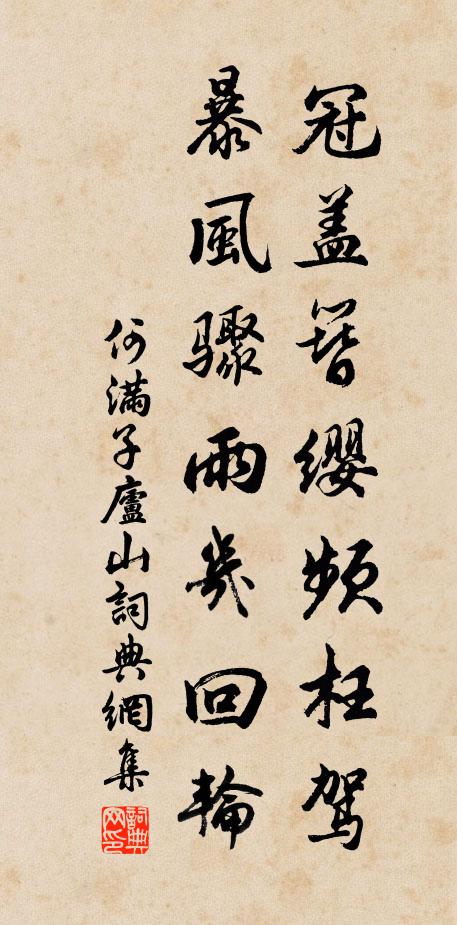 冠盖簪纓頻枉駕
暴風驟雨幾回輪
何滿子廬山詞典網集
詞典網印